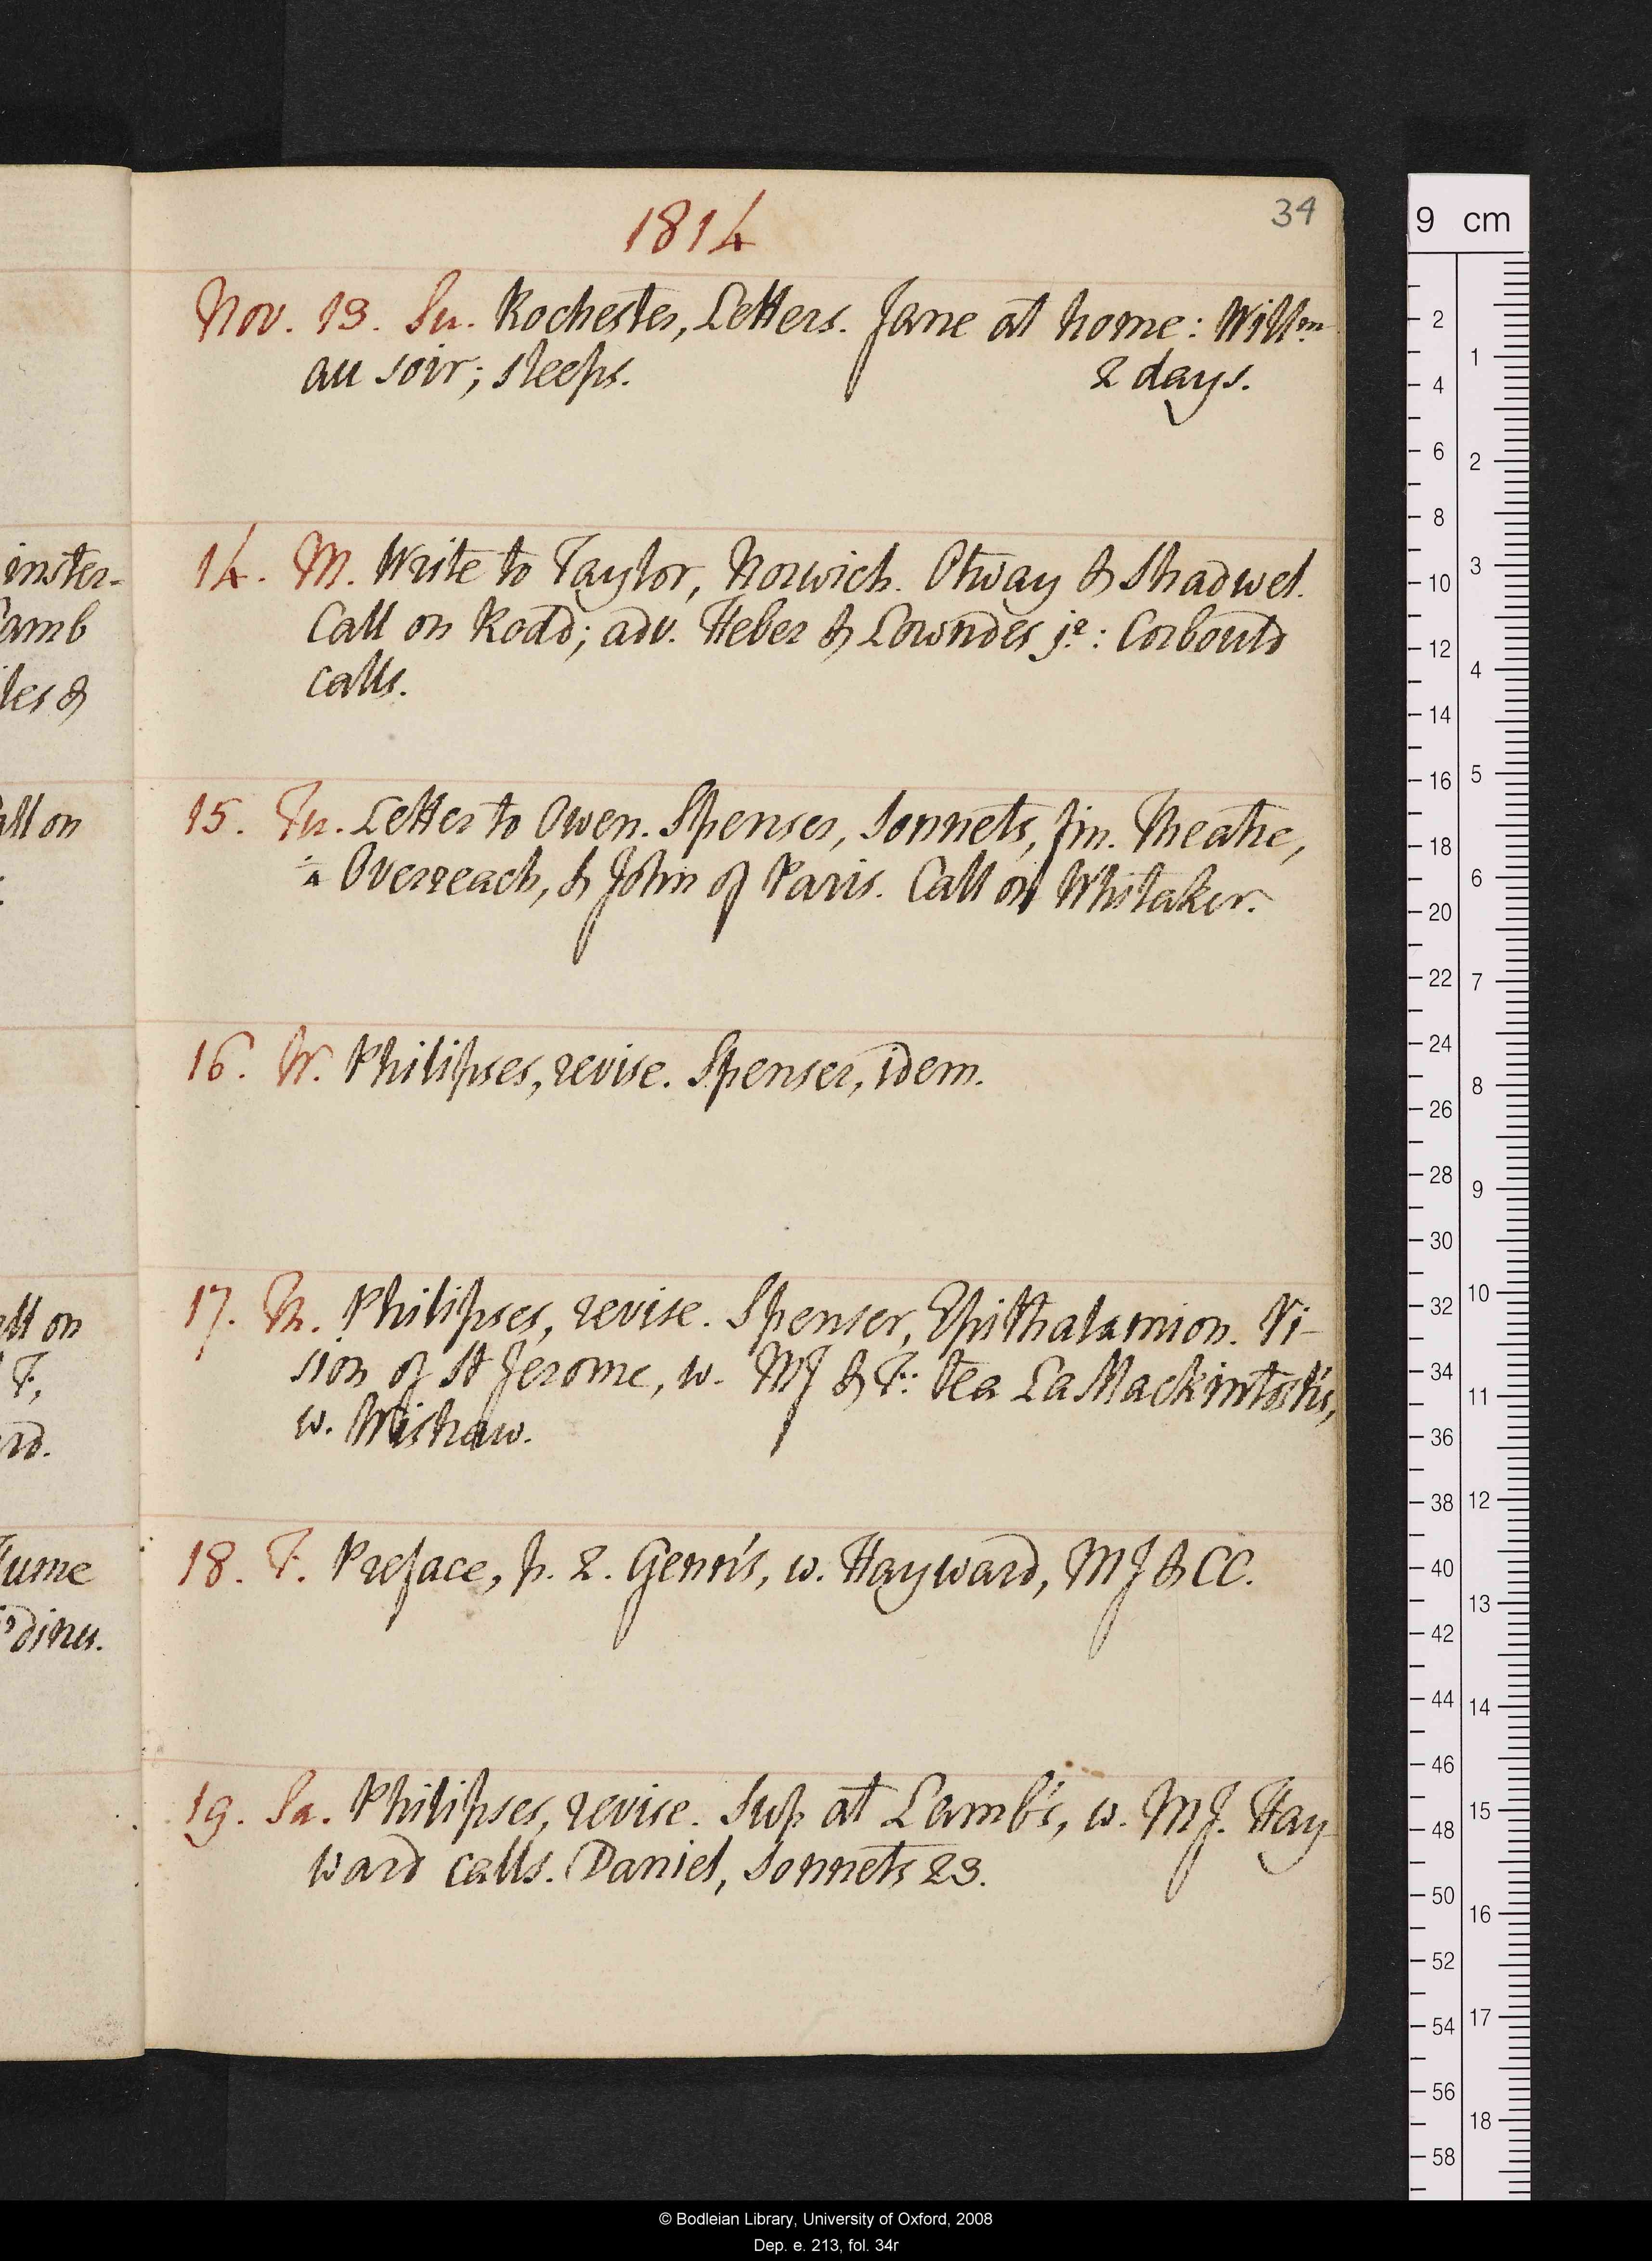 1814
34
Nov. 13. Su. Rochester, Letters. Jane at home: Willm
au soir; sleeps. 2 days.
14. M. Write to Taylor, Norwich. Otway & Shadwel.
Call on Rodd; adv. Heber & Lowndes jr: Corbould
calls.
15. Tu. Letter to Owen. Spenser, Sonnets, fin. Theatre,
Overreach, & John of Paris. Call on Whitaker.
16. W. Philipses, revise. Spenser, idem.
17. Th. Philipses, revise. Spenser, Epithalamion. Vi-
sion of St Jerome, w. MJ & F: tea La Mackintosh's,
w. Wishaw.
18. F. Preface, p. 2. Genri's, w. Hayward, MJ & CC.
19. Sa. Philipses, revise. Sup at Lamb's, w. MJ. Hay
ward calls. Daniel, Sonnets 23.
inster-
amb
les &
all on
all on
F,
rd.
ume
dines.
9 cm
2
4
6
8
10
12
14
16
18
20
22
24
26
28
30
32
34
36
38
40
42
44
46
48
50
52
54
56
58
1
2
3
4
5
6
7
8
9
10
11
12
13
14
15
16
17
18
© Bodleian Library, University of Oxford, 2008
Dep. e. 213, fol. 34r